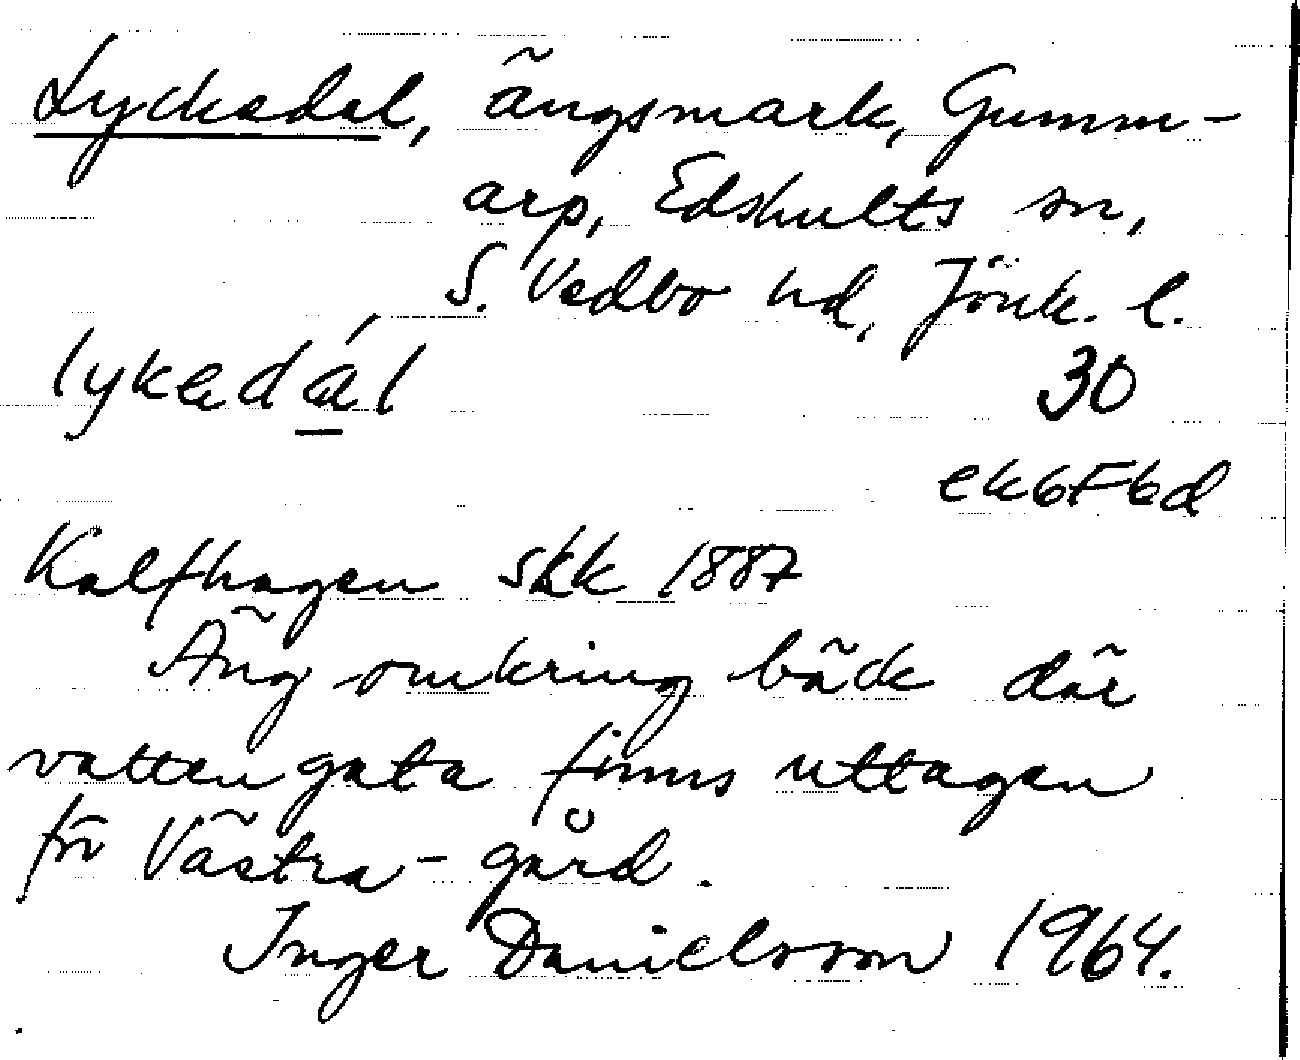 Lyckedal, ängsmark, Gumm-
arp, Edshults sn,
S. Vedbo hd, Jönk. l.
lykedál 30
ek6F6d
Kalfhagen skk 1887
Äng omkring bäck där
vattengata finns uttagen
för Västra-gård.
Inger Danielsson 1964.